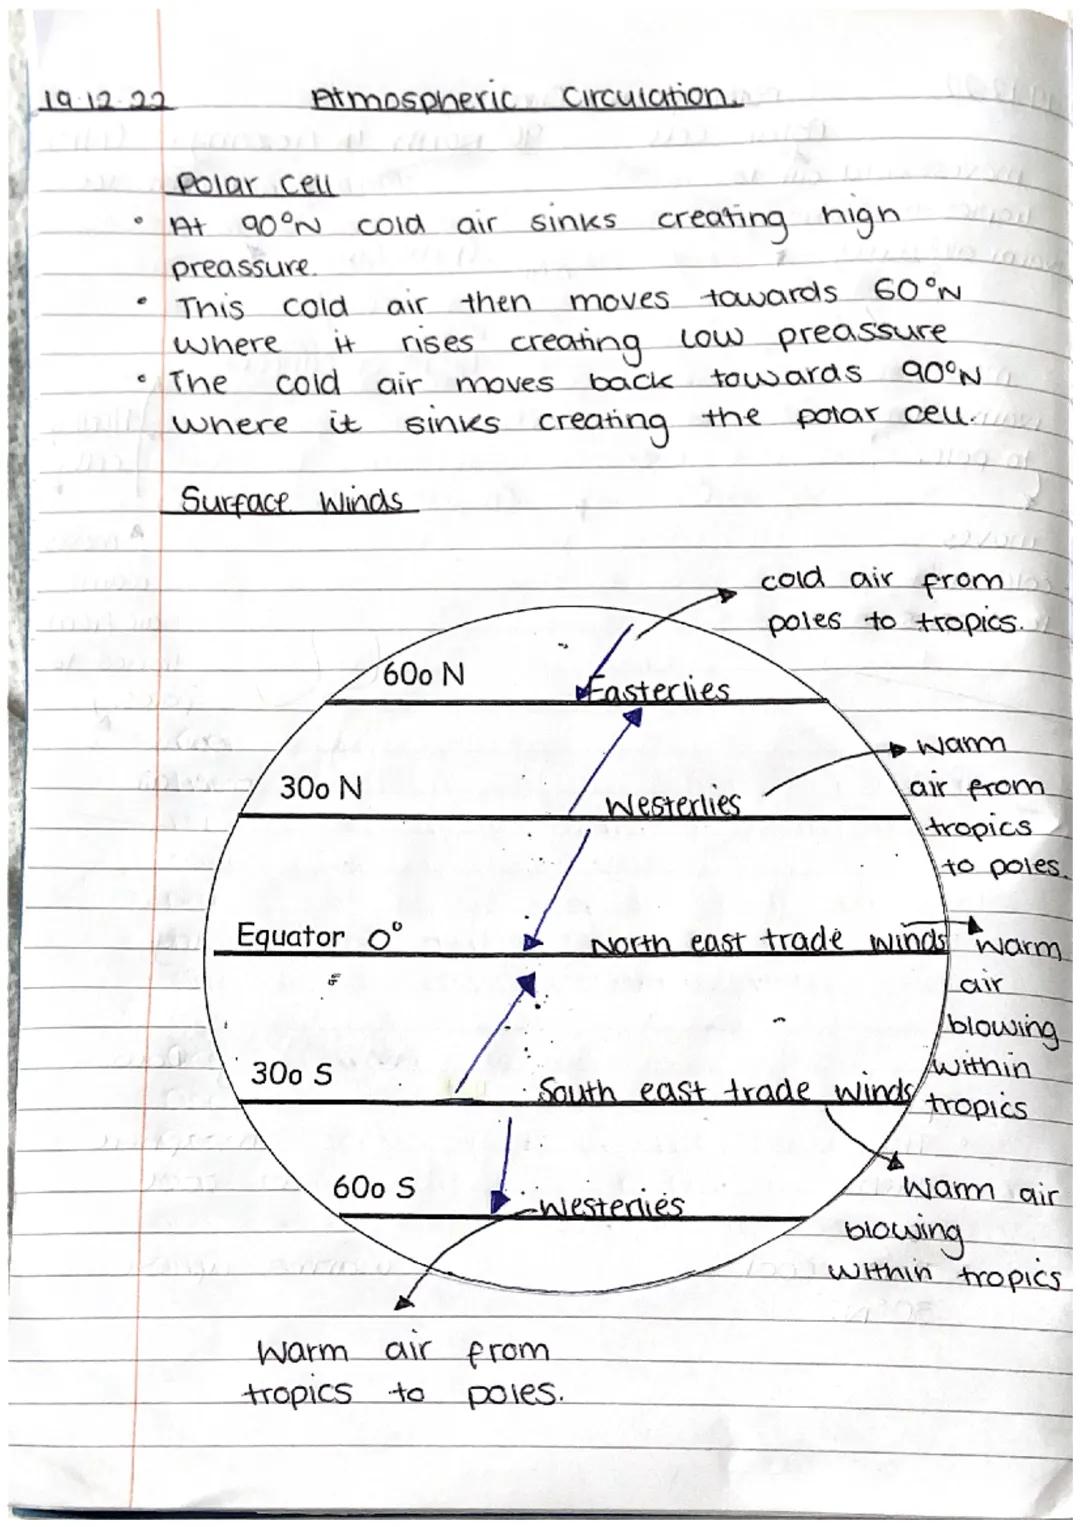 19.12.22 Atmospheric Circulation.
Polar cell
• At 90°N cold air sinks creating high
preassure.
• This cold air then moves towards 60°N
where it rises creating low preassure
• The cold air moves back towards 90°N
where it sinks creating the polar cell.
Surface Winds
cold air from
poles to tropics.
60o N
Easterlies
30o N
Westerlies
warm
air from
tropics
to poles.
Equator 0°
North east trade winds
warm
air
blowing
within
tropics
30o S
South east trade winds
warm air
blowing
within tropics
60o S
Westerlies
Warm air from
tropics to poles.